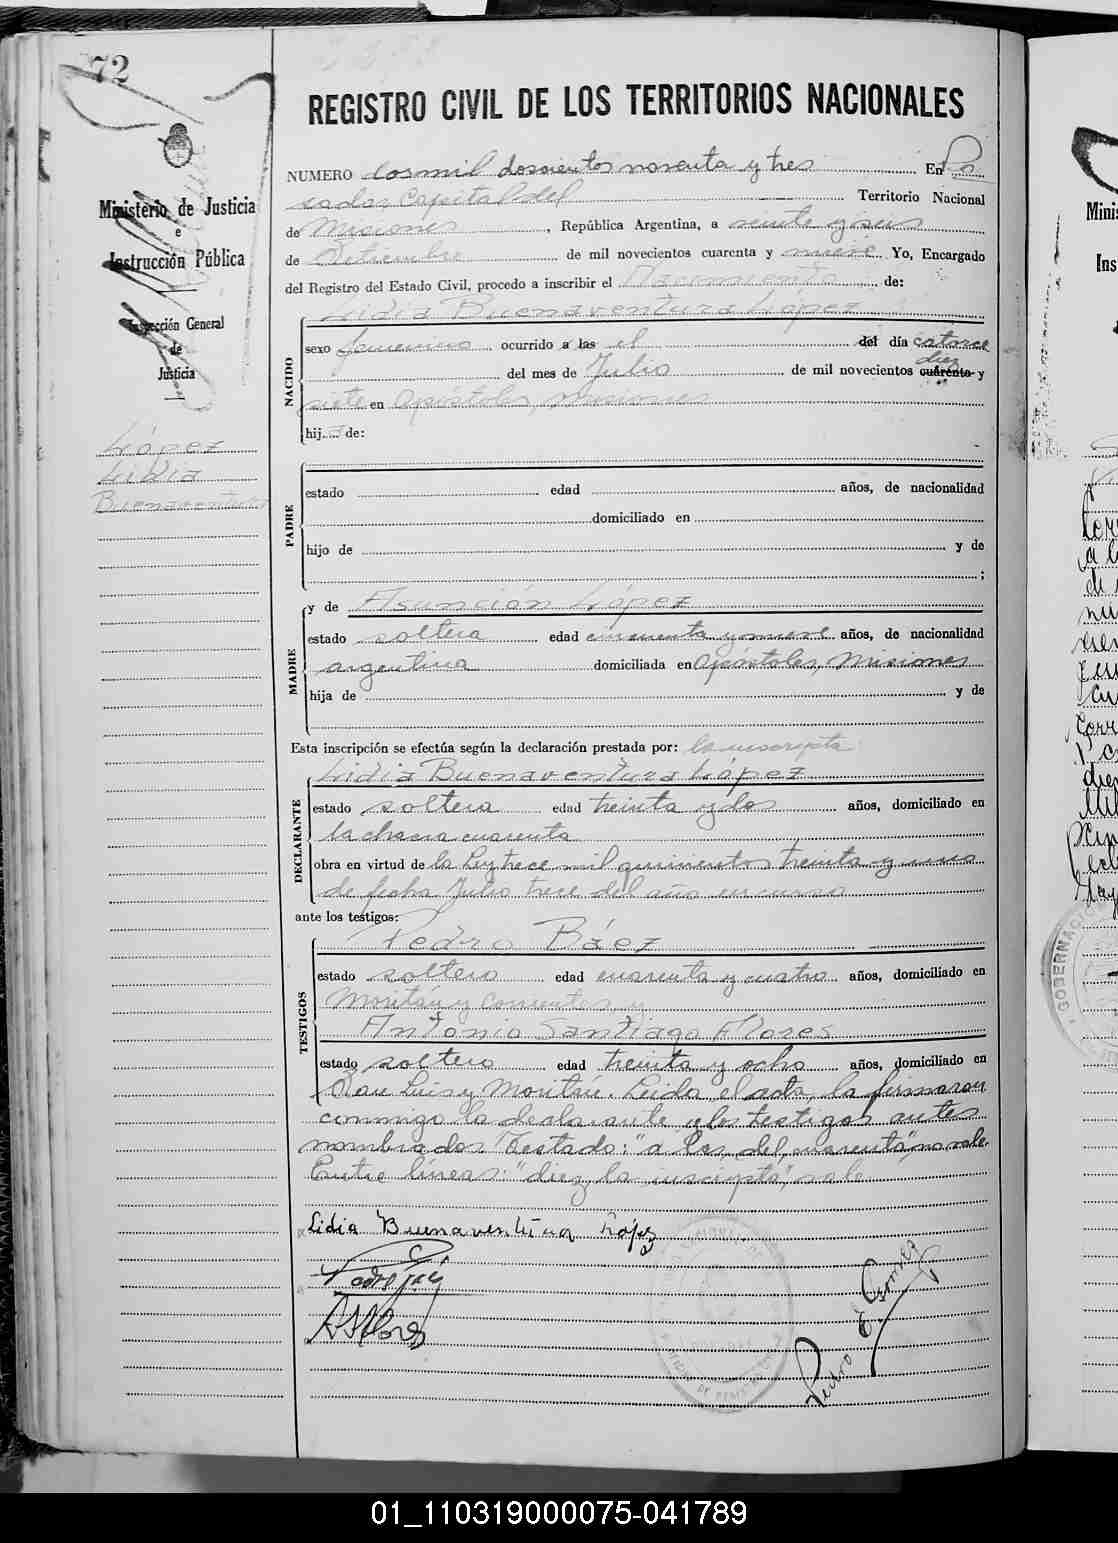 72
Ministerio de Justicia
e
Instrucción Pública
Inspección General
de
Justicia
López
Lidia
Buenaventura
REGISTRO CIVIL DE LOS TERRITORIOS NACIONALES
NUMERO dosmil doscientos noventa y tres En Po
sadas Capital del Territorio Nacional
de Misiones, República Argentina, a veinte y seis
de Setiembre de mil novecientos cuarenta y nueve Yo, Encargado
del Registro del Estado Civil, procedo a inscribir el Nacimiento de:
Lidia Buenaventura López
NACIDO
sexo femenino ocurrido a las el del día catorce
diez
del mes de Julio de mil novecientos cuarenta y
siete en Apóstoles, Misiones
hij a de:
PADRE
estado edad años, de nacionalidad
domiciliado en
hijo de y de
;
MADRE
y de Asunción López
estado soltera edad cincuenta y nueve años, de nacionalidad
argentina domiciliada en Apóstoles, Misiones
hija de y de
Esta inscripción se efectúa según la declaración prestada por: la inscripta
DECLARANTE
Lidia Buenaventura López
estado soltera edad treinta y dos años, domiciliado en
la chacra cuarenta
obra en virtud de la Ley trece mil quinientos treinta y uno
de fecha Julio trece del año en curso
ante los testigos:
TESTIGOS
Pedro Báez
estado soltero edad cuarenta y cuatro años, domiciliado en
Moritán y Corrientes, y
Antonio Santiago Flores
estado soltero edad treinta y ocho años, domiciliado en
San Luis y Moritán. Leida el acta, la firmaron
conmigo la declarante y los testigos antes
nombrados Testado: "a las, del, cuarenta", no vale
Entre líneas: "diez, la inscripta", vale
Lidia Buenaventura López
Pedro Báez
A S Flores
Pedro E. Gomez
01_110319000075-041789